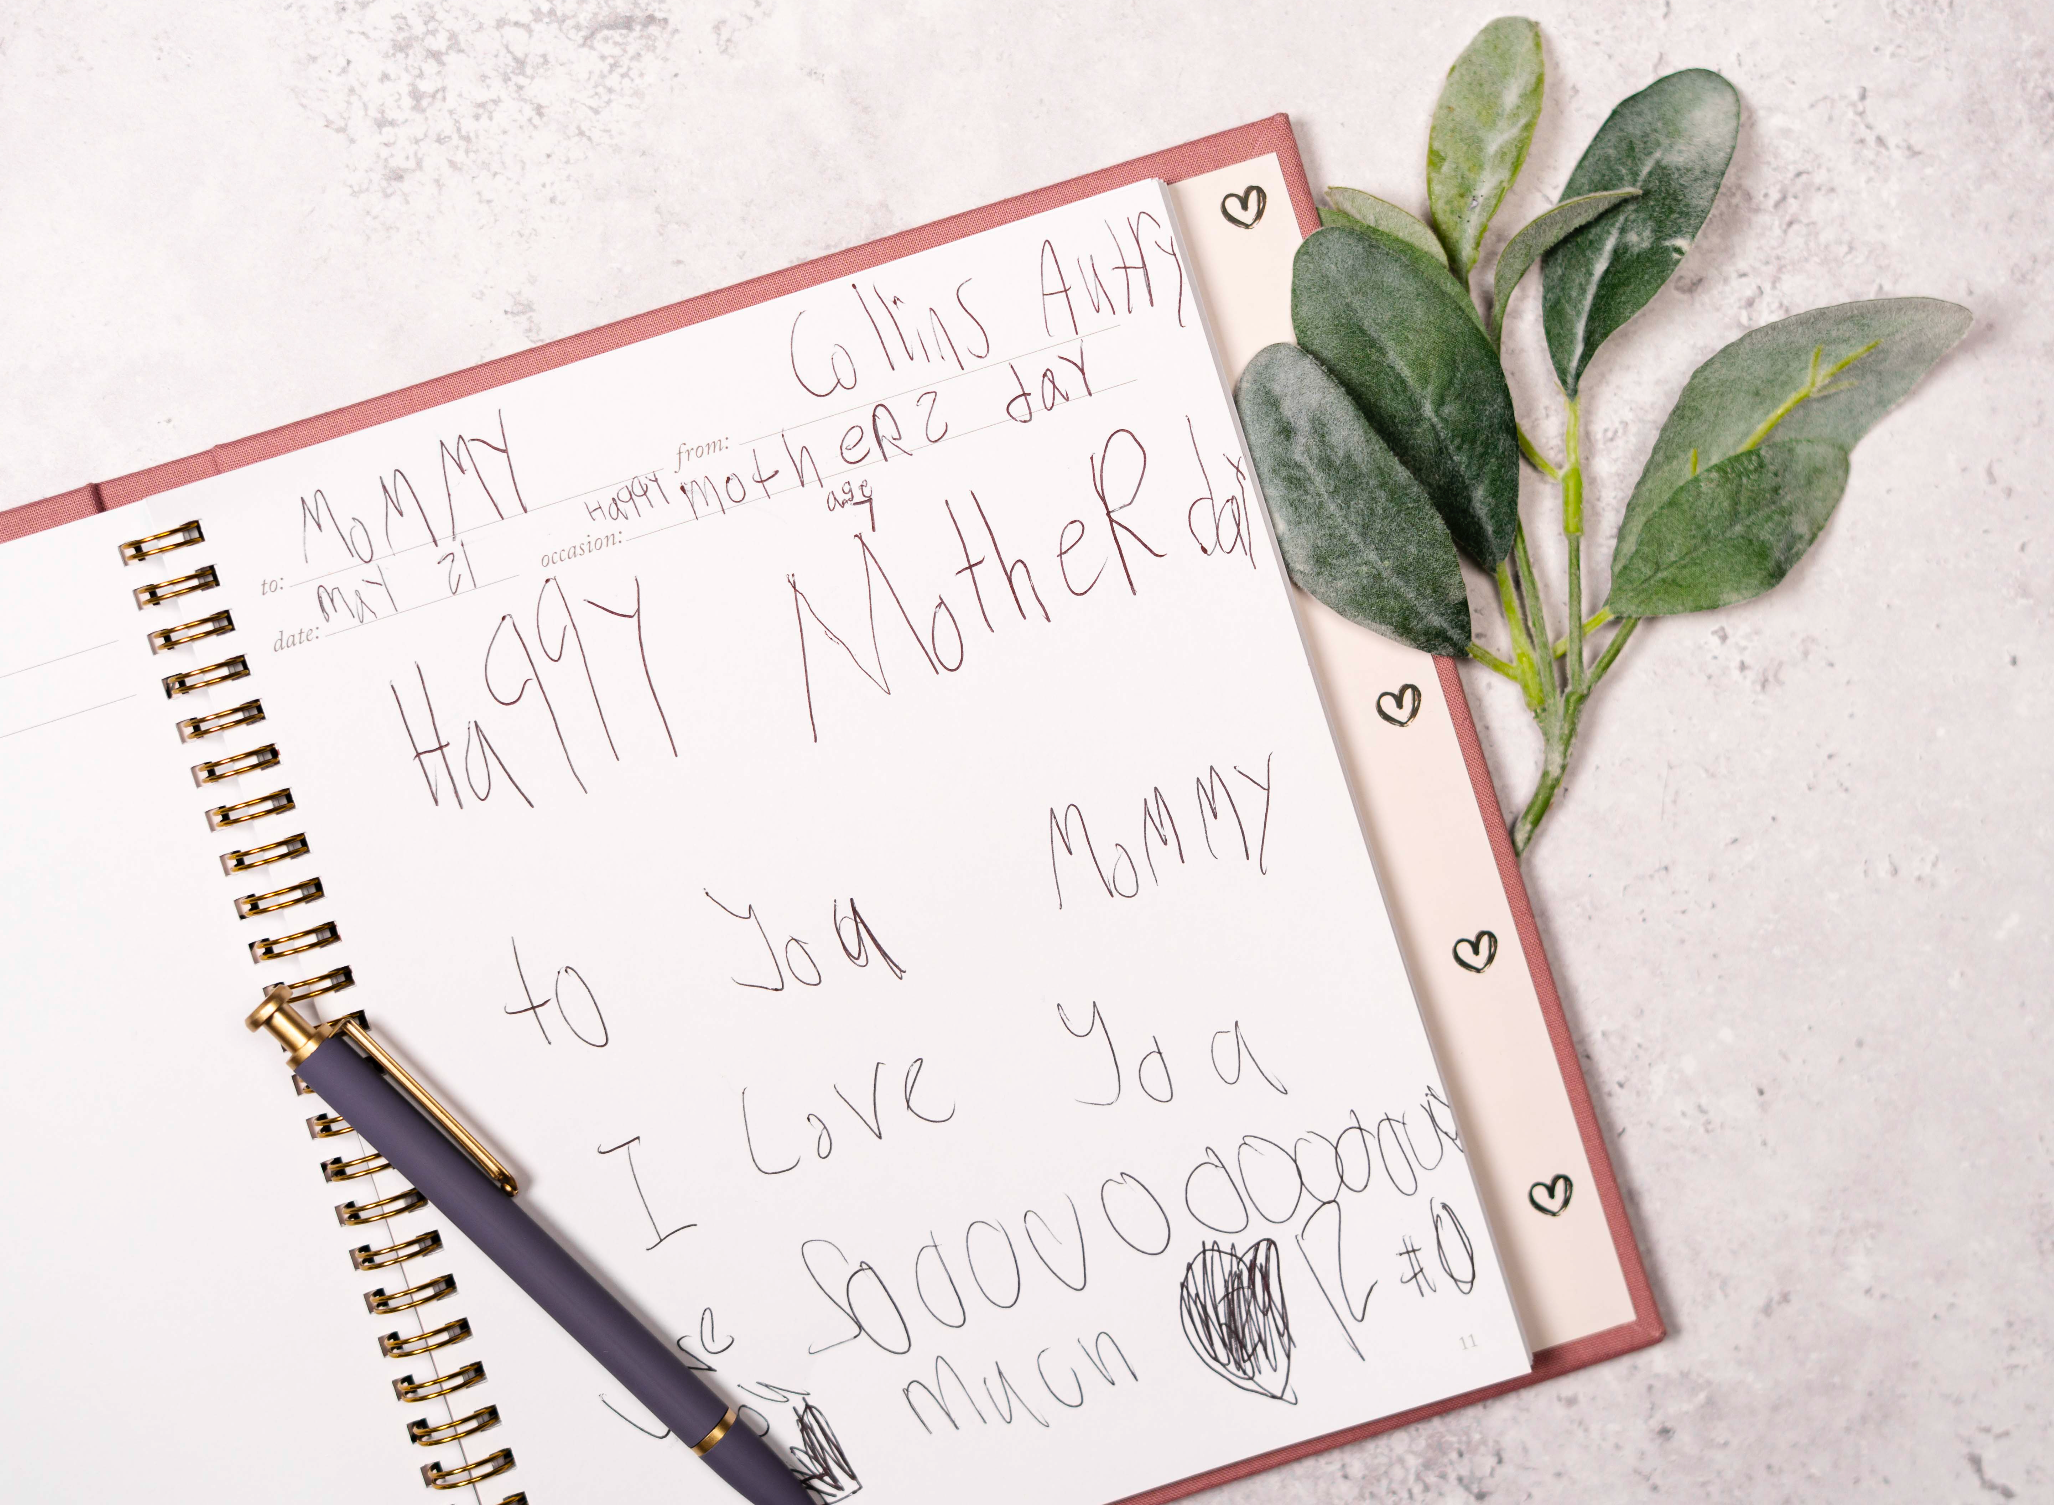 to: MoMMY from: Collins Autry
date: May 21 occasion: Happy motheRs day
age 7
Happy MotheR day
to you MoMMY
I Love You
Sooooooooooooo
much
11